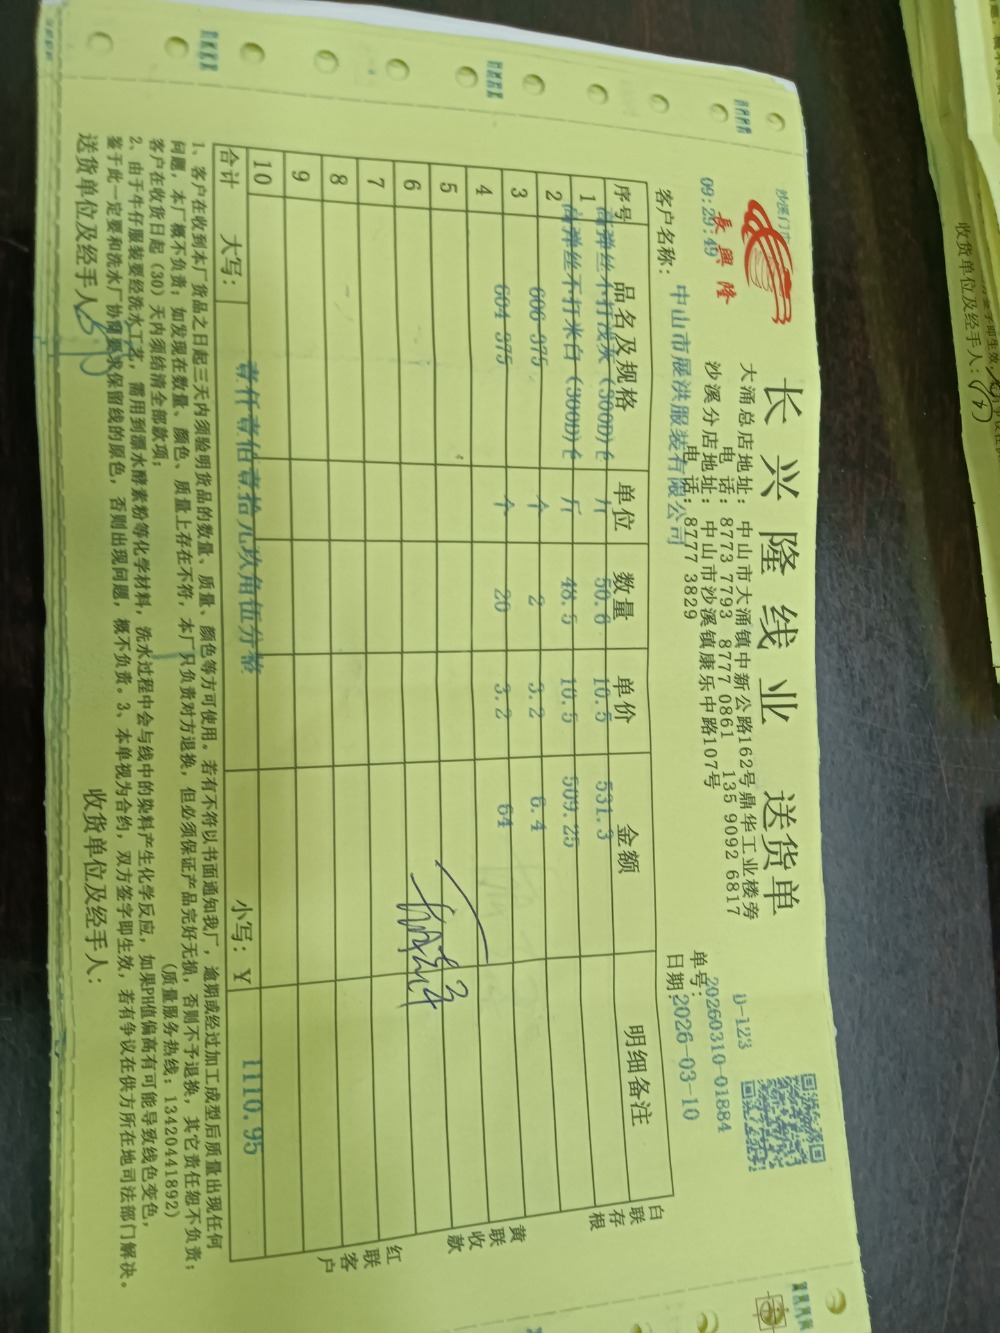 沙溪门市
長興隆
09:29:49
长兴隆线业 送货单
大涌总店地址: 中山市大涌镇中新公路162号鼎华工业楼旁
电 话: 8773 7793 8777 0861 135 9092 6817
沙溪分店地址: 中山市沙溪镇康乐中路107号
电 话: 8777 3829
D-123
单号: 20260310-01884
日期: 2026-03-10
客户名称: 中山市展洪服装有限公司
序号 品名及规格 单位 数量 单价 金额 明细备注
1 高弹丝不打浅灰(300D)仓 斤 50.6 10.5 531.3
2 高弹丝不打米白(300D)仓 斤 48.5 10.5 509.25
3 606 375 个 2 3.2 6.4
4 604 375 个 20 3.2 64
5
6
7
8
9
10
合计 大写: 壹仟壹佰壹拾元玖角伍分整 小写: ¥ 1110.95
白联存根
黄联收款
红联客户
1、客户在收到本厂货品之日起三天内须验明货品的数量、质量、颜色等方可使用。若有不符以书面通知我厂,逾期或经过加工成型后质量出现任何
问题,本厂概不负责;如发现在数量、颜色、质量上存在不符,本厂只负责对方退换,但必须保证产品完好无损,否则不予退换,其它责任恕不负责;
客户在收货日起(30)天内须结清全部款项; (质量服务热线: 13420441892)
2、由于牛仔服装要经洗水工艺,需用到漂水酵素粉等化学材料,洗水过程中会与线中的染料产生化学反应,如果PH值偏高有可能导致线色变色,
鉴于此一定要和洗水厂协商要求保留线的原色,否则出现问题,概不负责。3、本单视为合约,双方签字即生效,若有争议在供方所在地司法部门解决。
送货单位及经手人: 收货单位及经手人:
收货单位及经手人: